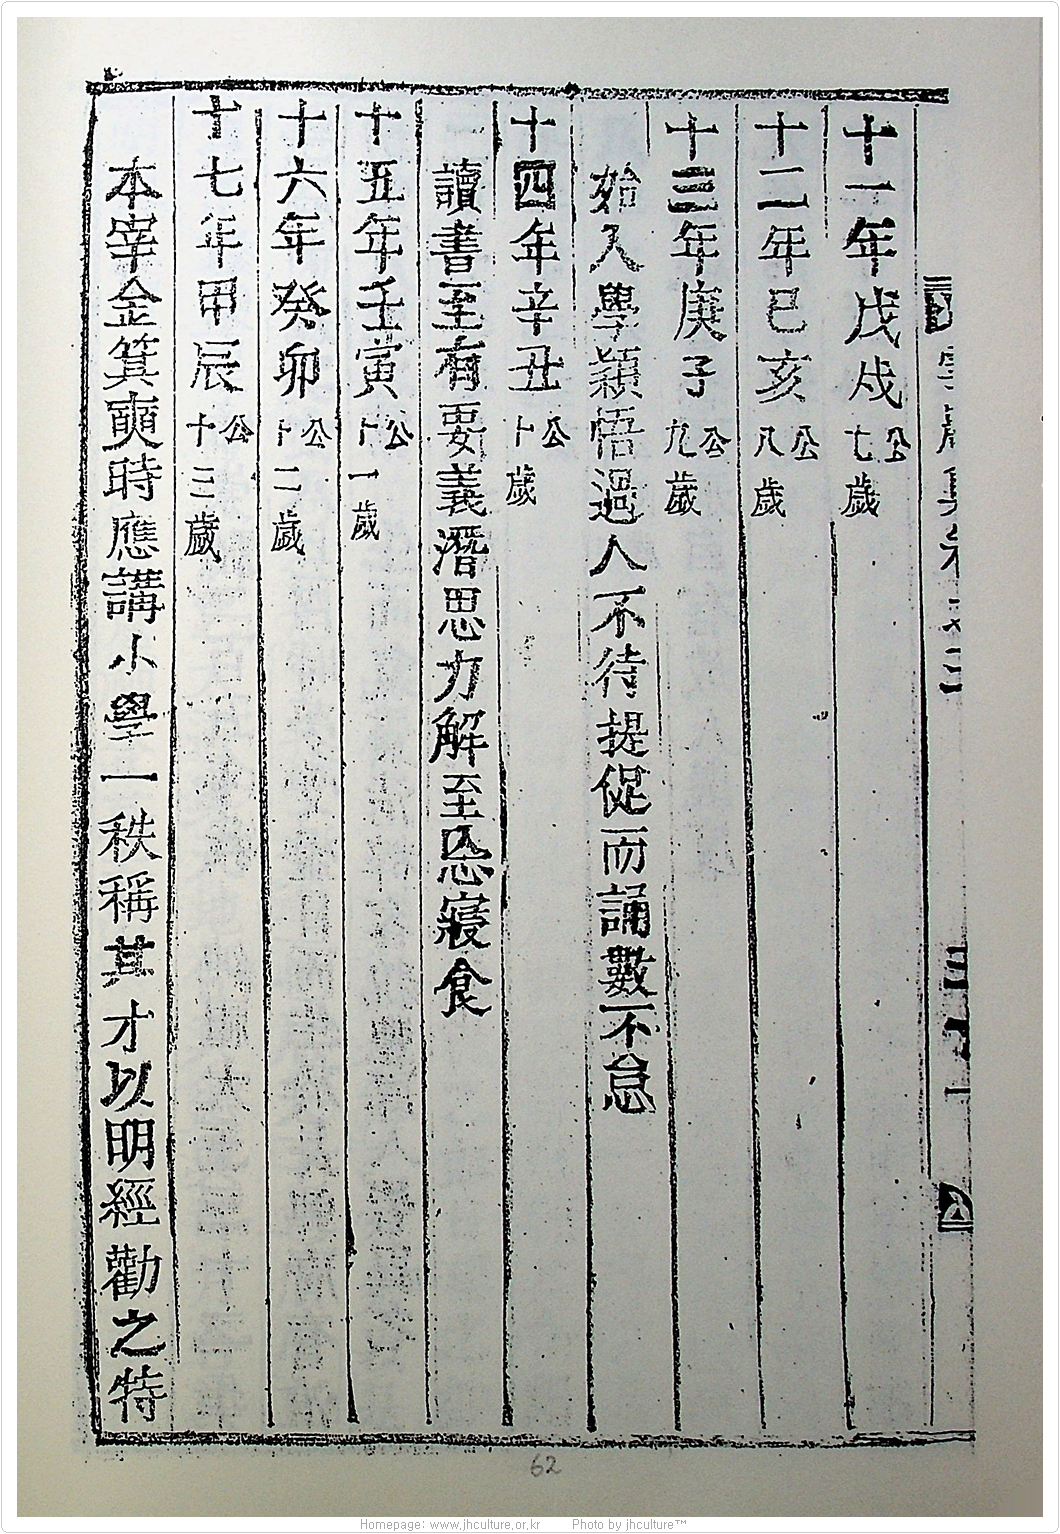 十一年戊戌公七歲
十二年己亥公八歲
十三年庚子公九歲
始入學穎悟過人不待提促而誦數不怠
十四年辛丑公十歲
讀書至有要義潛思力解至忘寢食
十五年壬寅公十一歲
十六年癸卯公十二歲
十七年甲辰公十三歲
本宰金箕奭時應講小學一秩稱其才以明經勸之特
62
Homepage: www.jhculture.or.kr Photo by jhculture™